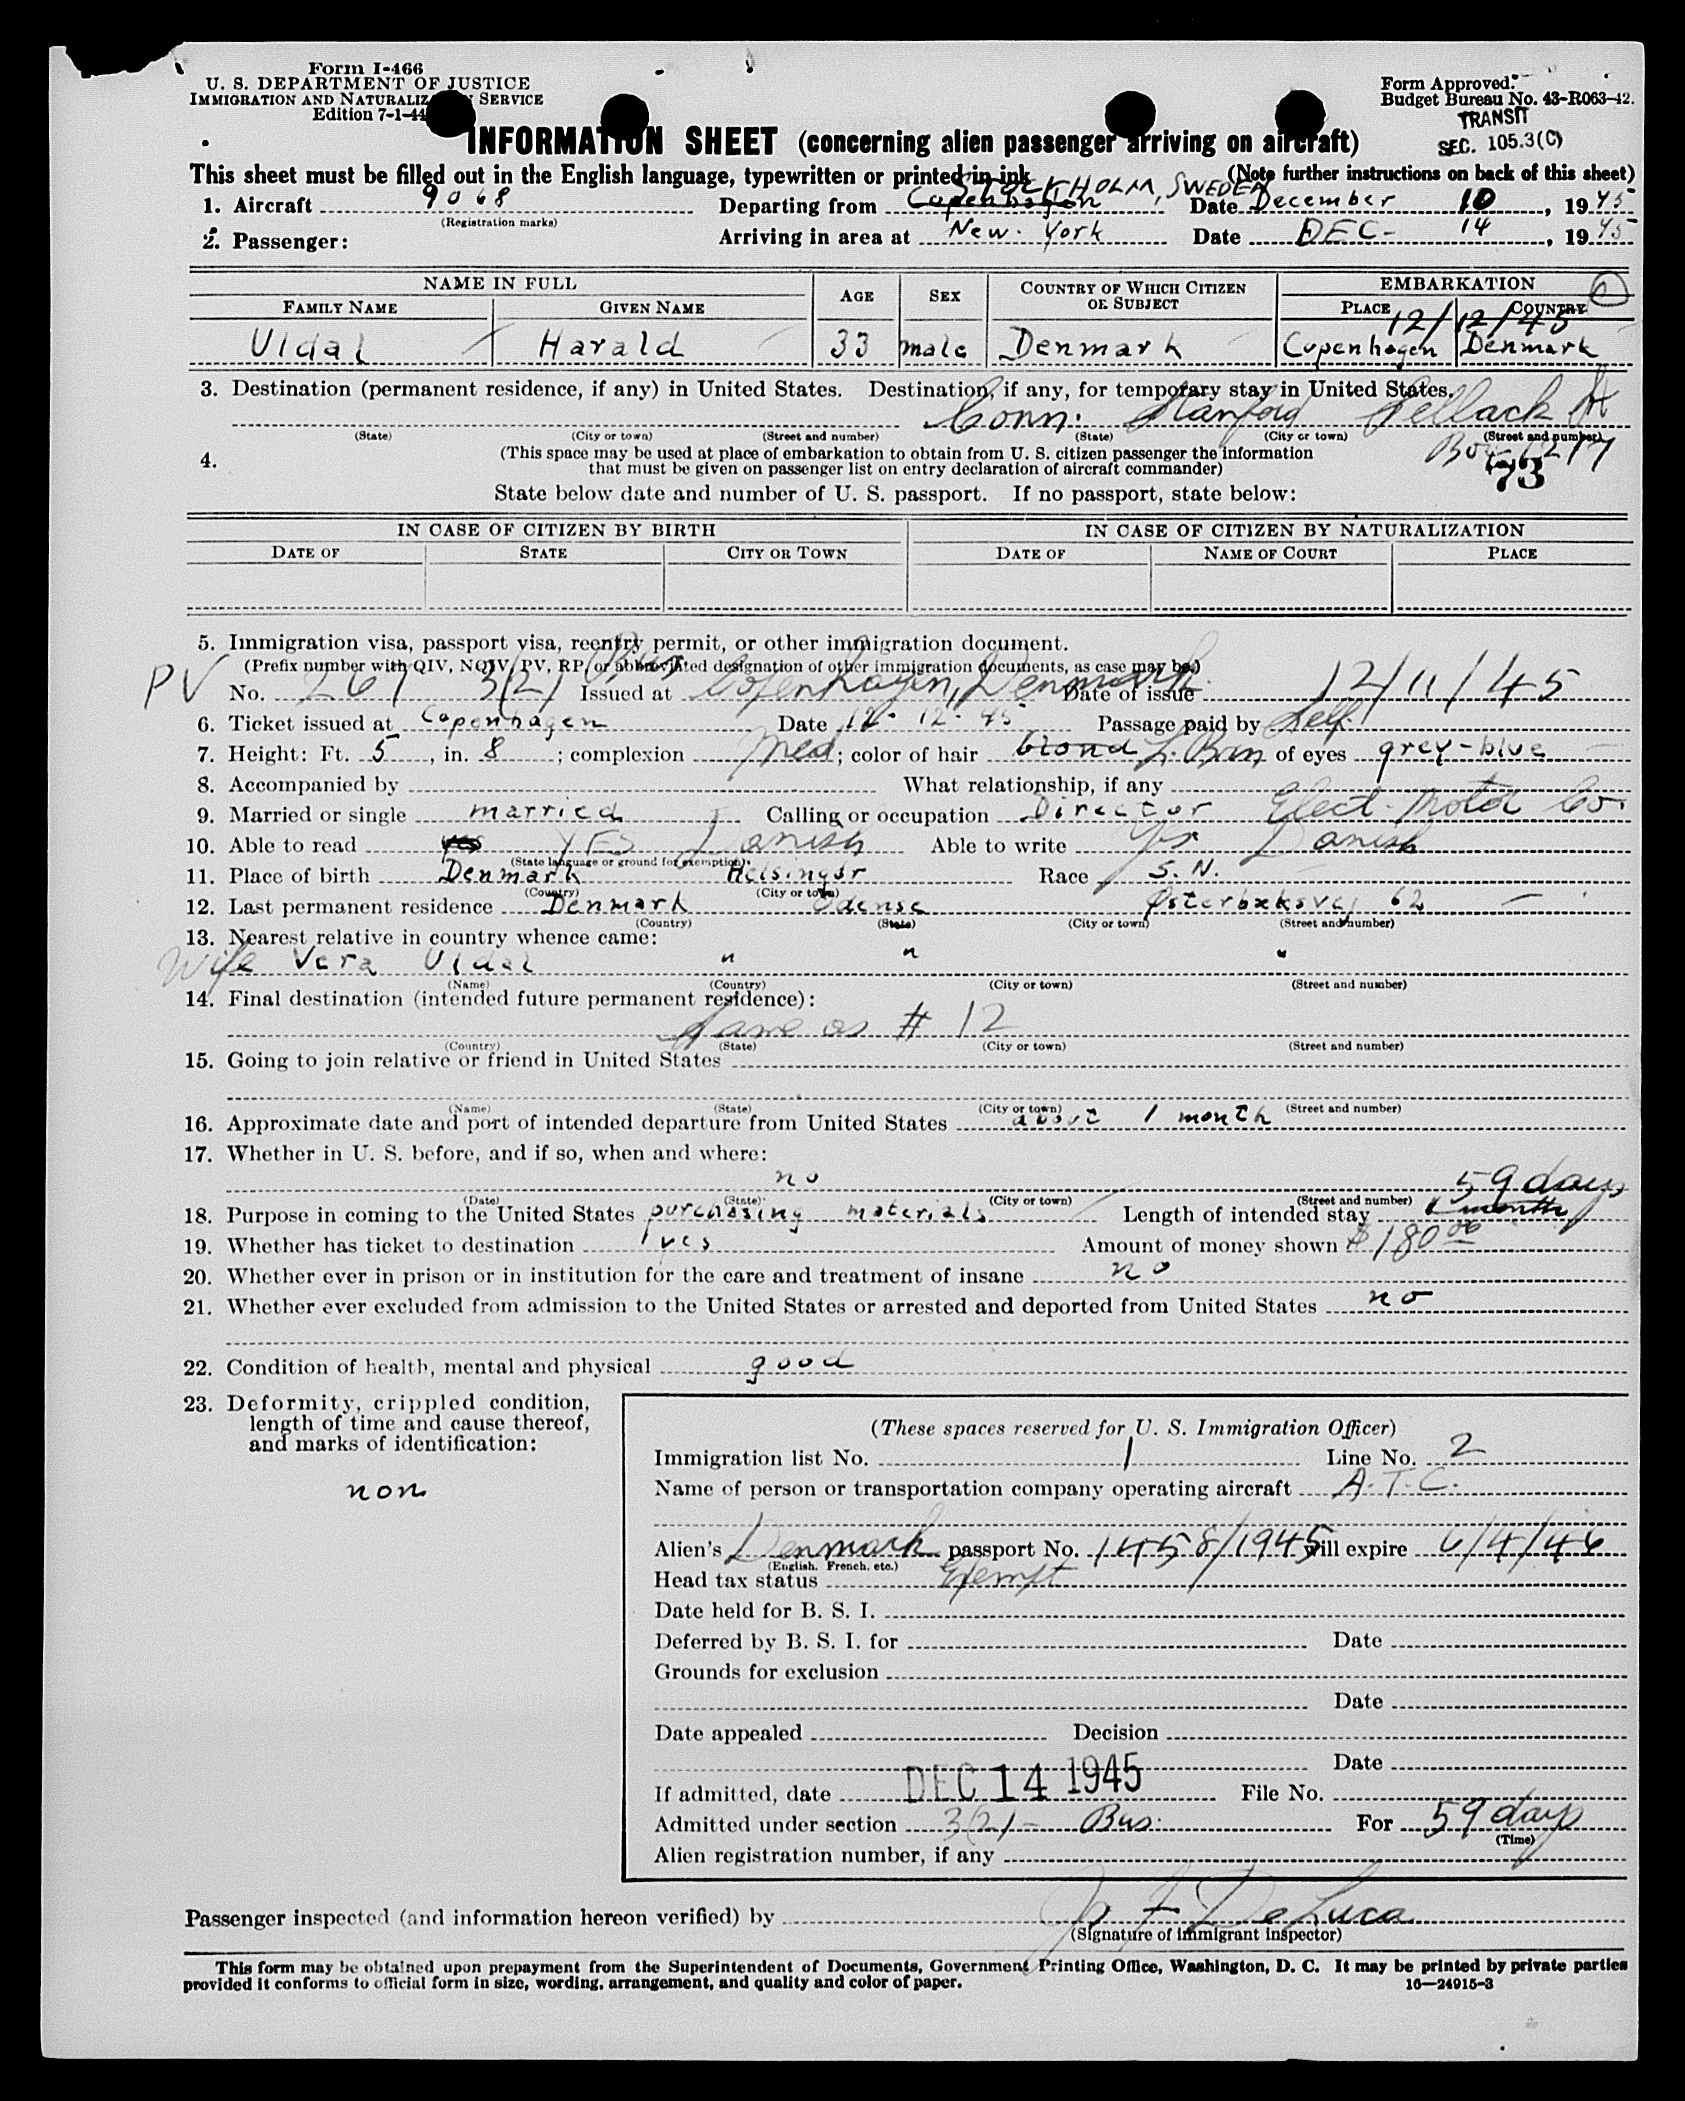 Form I-466
U. S. DEPARTMENT OF JUSTICE
IMMIGRATION AND NATURALIZ SERVICE
Edition 7-1-44
Form Approved.
Budget Bureau No. 43-R063-42.
TRANSIT
SEC. 105.3(C)
INFORMATION SHEET (concerning alien passenger arriving on aircraft)
This sheet must be filled out in the English language, typewritten or printed in ink (Note further instructions on back of this sheet)
STOCKHOLM, SWEDEN
1. Aircraft 9068 Departing from Copenhagen Date December 10, 1945
(Registration marks)
2. Passenger: Arriving in area at New York Date DEC- 14, 1945
NAME IN FULL AGE SEX COUNTRY OF WHICH CITIZEN OR SUBJECT EMBARKATION
FAMILY NAME GIVEN NAME PLACE COUNTRY
12/12/45
Uldal Harald 33 male Denmark Copenhagen Denmark
3. Destination (permanent residence, if any) in United States. Destination, if any, for temporary stay in United States.
Conn. Stanford Sellack St
(State) (City or town) (Street and number) (State) (City or town) (Street and number)
Box 1217
4. (This space may be used at place of embarkation to obtain from U. S. citizen passenger the information
that must be given on passenger list on entry declaration of aircraft commander)
73
State below date and number of U. S. passport. If no passport, state below:
IN CASE OF CITIZEN BY BIRTH IN CASE OF CITIZEN BY NATURALIZATION
DATE OF STATE CITY OR TOWN DATE OF NAME OF COURT PLACE
5. Immigration visa, passport visa, reentry permit, or other immigration document.
(Prefix number with QIV, NQIV, PV, RP, or abbreviated designation of other immigration documents, as case may be.)
Bus
PV No. 267 3(2) Issued at Copenhagen, Denmark Date of issue 12/11/45
6. Ticket issued at Copenhagen Date 12-12-45 Passage paid by Self.
7. Height: Ft. 5, in. 8; complexion Med; color of hair blond L. Brn of eyes grey-blue
8. Accompanied by What relationship, if any
9. Married or single married Calling or occupation Director Elect. Motor Co.
10. Able to read yes YES Danish Able to write Yes Danish
(State language or ground for exemption)
11. Place of birth Denmark Helsingör Race S. N.
(Country) (City or town)
12. Last permanent residence Denmark Odense Østerbæksvej 62
(Country) (State) (City or town) (Street and number)
13. Nearest relative in country whence came:
Wife Vera Uldal " " "
(Name) (Country) (City or town) (Street and number)
14. Final destination (intended future permanent residence):
Same as # 12
(Country) (State) (City or town) (Street and number)
15. Going to join relative or friend in United States
(Name) (State) (City or town) (Street and number)
16. Approximate date and port of intended departure from United States about 1 month
17. Whether in U. S. before, and if so, when and where:
no
(Date) (State) (City or town) (Street and number)
59 days
18. Purpose in coming to the United States purchasing materials Length of intended stay 1 month
19. Whether has ticket to destination yes Amount of money shown $180.00
20. Whether ever in prison or in institution for the care and treatment of insane no
21. Whether ever excluded from admission to the United States or arrested and deported from United States no
22. Condition of health, mental and physical good
23. Deformity, crippled condition,
length of time and cause thereof,
and marks of identification:
non
(These spaces reserved for U. S. Immigration Officer)
Immigration list No. 1 Line No. 2
Name of person or transportation company operating aircraft A.T.C.
Alien's Denmark passport No. 1458/1945 will expire 6/4/46
(English, French, etc.)
Head tax status Exempt
Date held for B. S. I.
Deferred by B. S. I. for Date
Grounds for exclusion
Date
Date appealed Decision
Date
If admitted, date DEC 14 1945 File No.
Admitted under section 3(2)- Bus. For 59 days
(Time)
Alien registration number, if any
Passenger inspected (and information hereon verified) by DeLuca
(Signature of immigrant inspector)
This form may be obtained upon prepayment from the Superintendent of Documents, Government Printing Office, Washington, D. C. It may be printed by private parties
provided it conforms to official form in size, wording, arrangement, and quality and color of paper. 16—24915-3